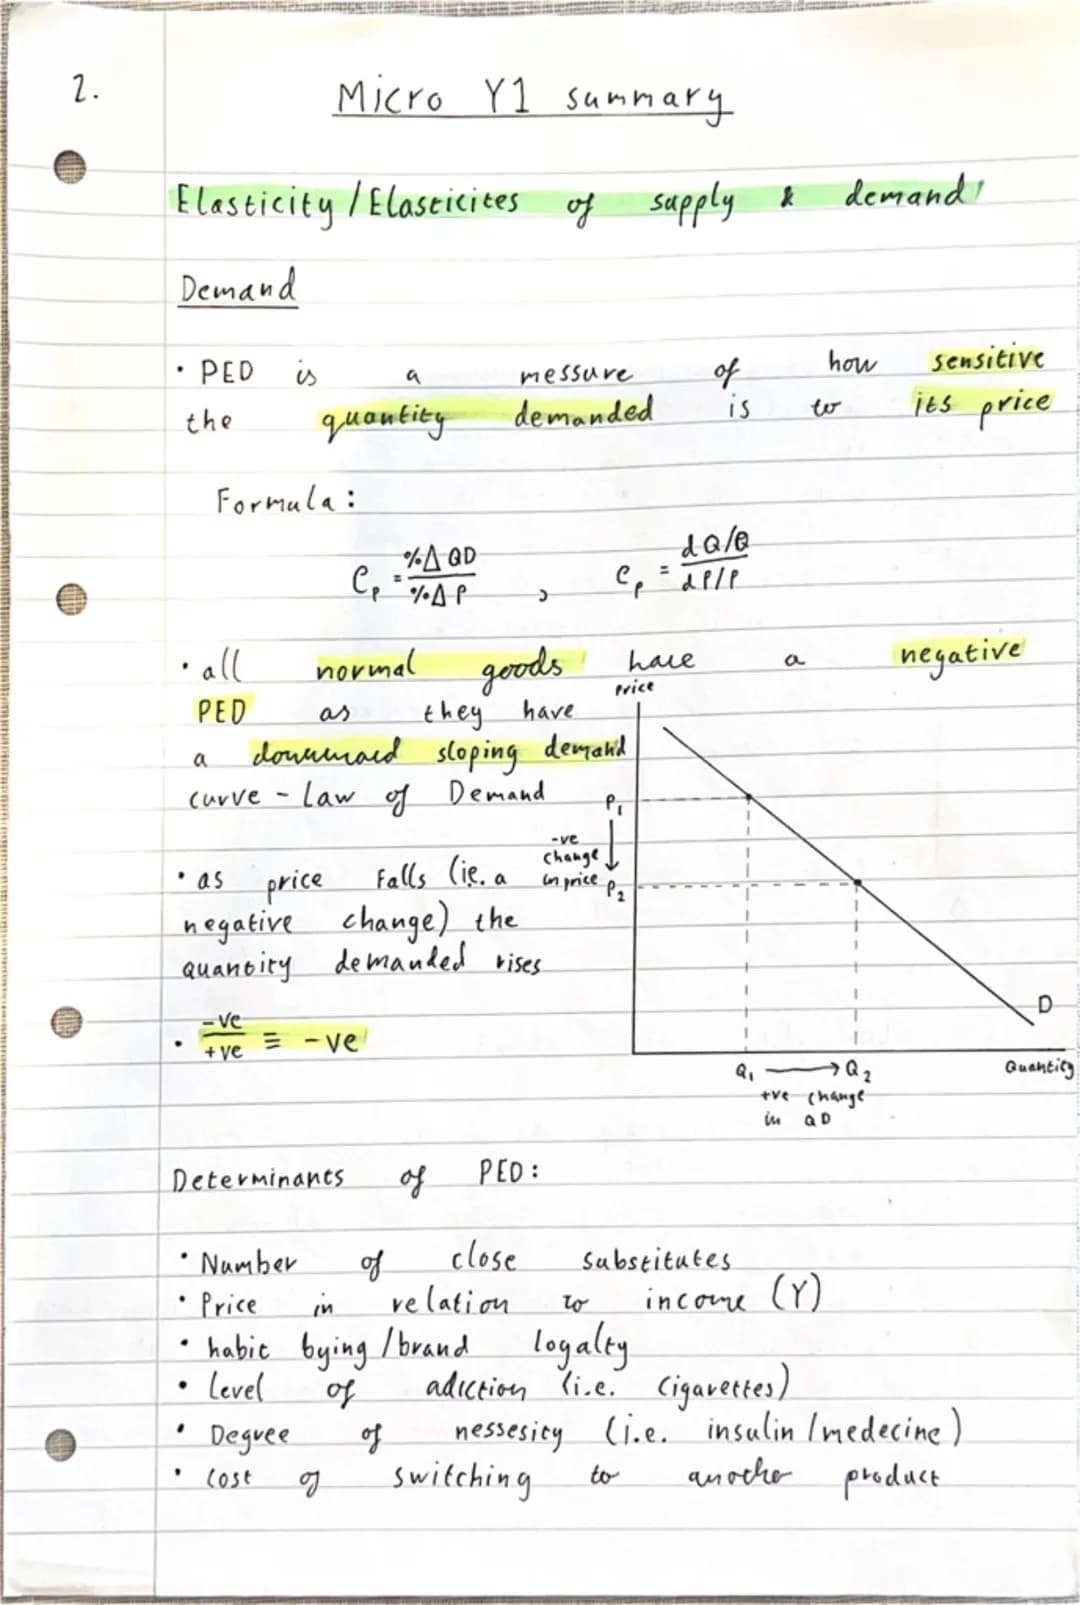 2.
Micro Y1 summary
Elasticity / Elasticites of supply & demand
Demand
• PED is a messure of how sensitive
the quantity demanded is to its price
Formula:
e_p = %Δ QD / %Δ P , e_p = dQ/Q / dP/P
• all normal goods have a negative
PED as they have
a downward sloping demand
curve - Law of Demand
• as price falls (ie. a
negative change) the
quantity demanded rises
• -ve / +ve ≡ -ve
Price
P₁
-ve
change
in price
P₂
D
Q₁ → Q₂
Quantity
+ve change
in QD
Determinants of PED:
• Number of close substitutes
• Price in relation to income (Y)
• habit bying / brand loyalty
• Level of adiction (i.e. Cigarettes)
• Degree of nessesity (i.e. insulin / medecine)
• Cost of switching to another product